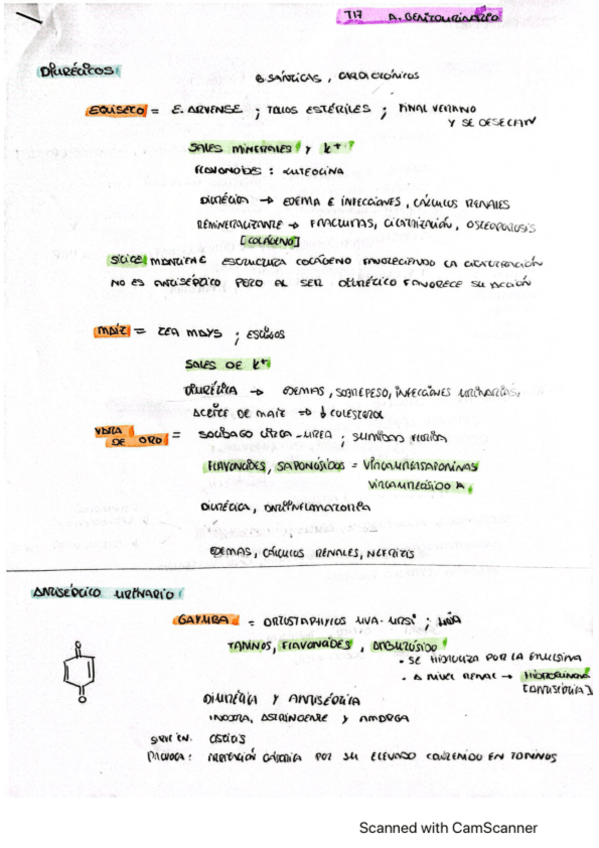 T17 A. GENITOURINARIO
DIURÉTICOS:
EQUISETO = E. ARVENSE ; TALLOS ESTÉRILES ; FINAL VERANO
Y SE DESECAN
SALES MINERALES y K+
FLAVONOIDES : LUTEOLINA
DIURÉTICA → EDEMA E INFECCIONES, CÁLCULOS RENALES
REMINERALIZANTE → FRACTURAS, CICATRIZACIÓN, OSTEOPOROSIS
[COLÁGENO]
SÍLICE MANTIENE ESTRUCTURA COLÁGENO FAVORECIENDO LA CICATRIZACIÓN
NO ES ANTISÉPTICO PERO AL SER DIURÉTICO FAVORECE SU ACCIÓN
MAÍZ = ZEA MAYS ; ESTIGMAS
SALES DE K+
DIURÉTICA → EDEMAS, SOBREPESO, INFECCIONES URINARIAS,
ACEITE DE MAÍZ ⇒ ↓ COLESTEROL
VARA DE ORO = SOLIDAGO VIRGA-UREA ; SUMIDAD FLORIDA
FLAVONOIDES, SAPONÓSIDOS = VIRGAUREASAPONINAS
VIRGAUREÓSIDO A
DIURÉTICA, ANTIINFLAMATORIA
EDEMAS, CÁLCULOS RENALES, NEFRITIS
ANTISÉPTICO URINARIO :
GAYUBA = UVA-URSI ;
TANINOS, FLAVONOIDES,
· SE HIDROLIZA POR LA EMULSINA
· A NIVEL RENAL → HIDROQUINONA
[ANTISÉPTICA]
O
O
DIURÉTICA Y ANTISÉPTICA
INODORA, ASTRINGENTE Y AMARGA
CISTITIS
PROVOCA : IRRITACIÓN GÁSTRICA POR SU ELEVADO CONTENIDO EN TANINOS
Scanned with CamScanner